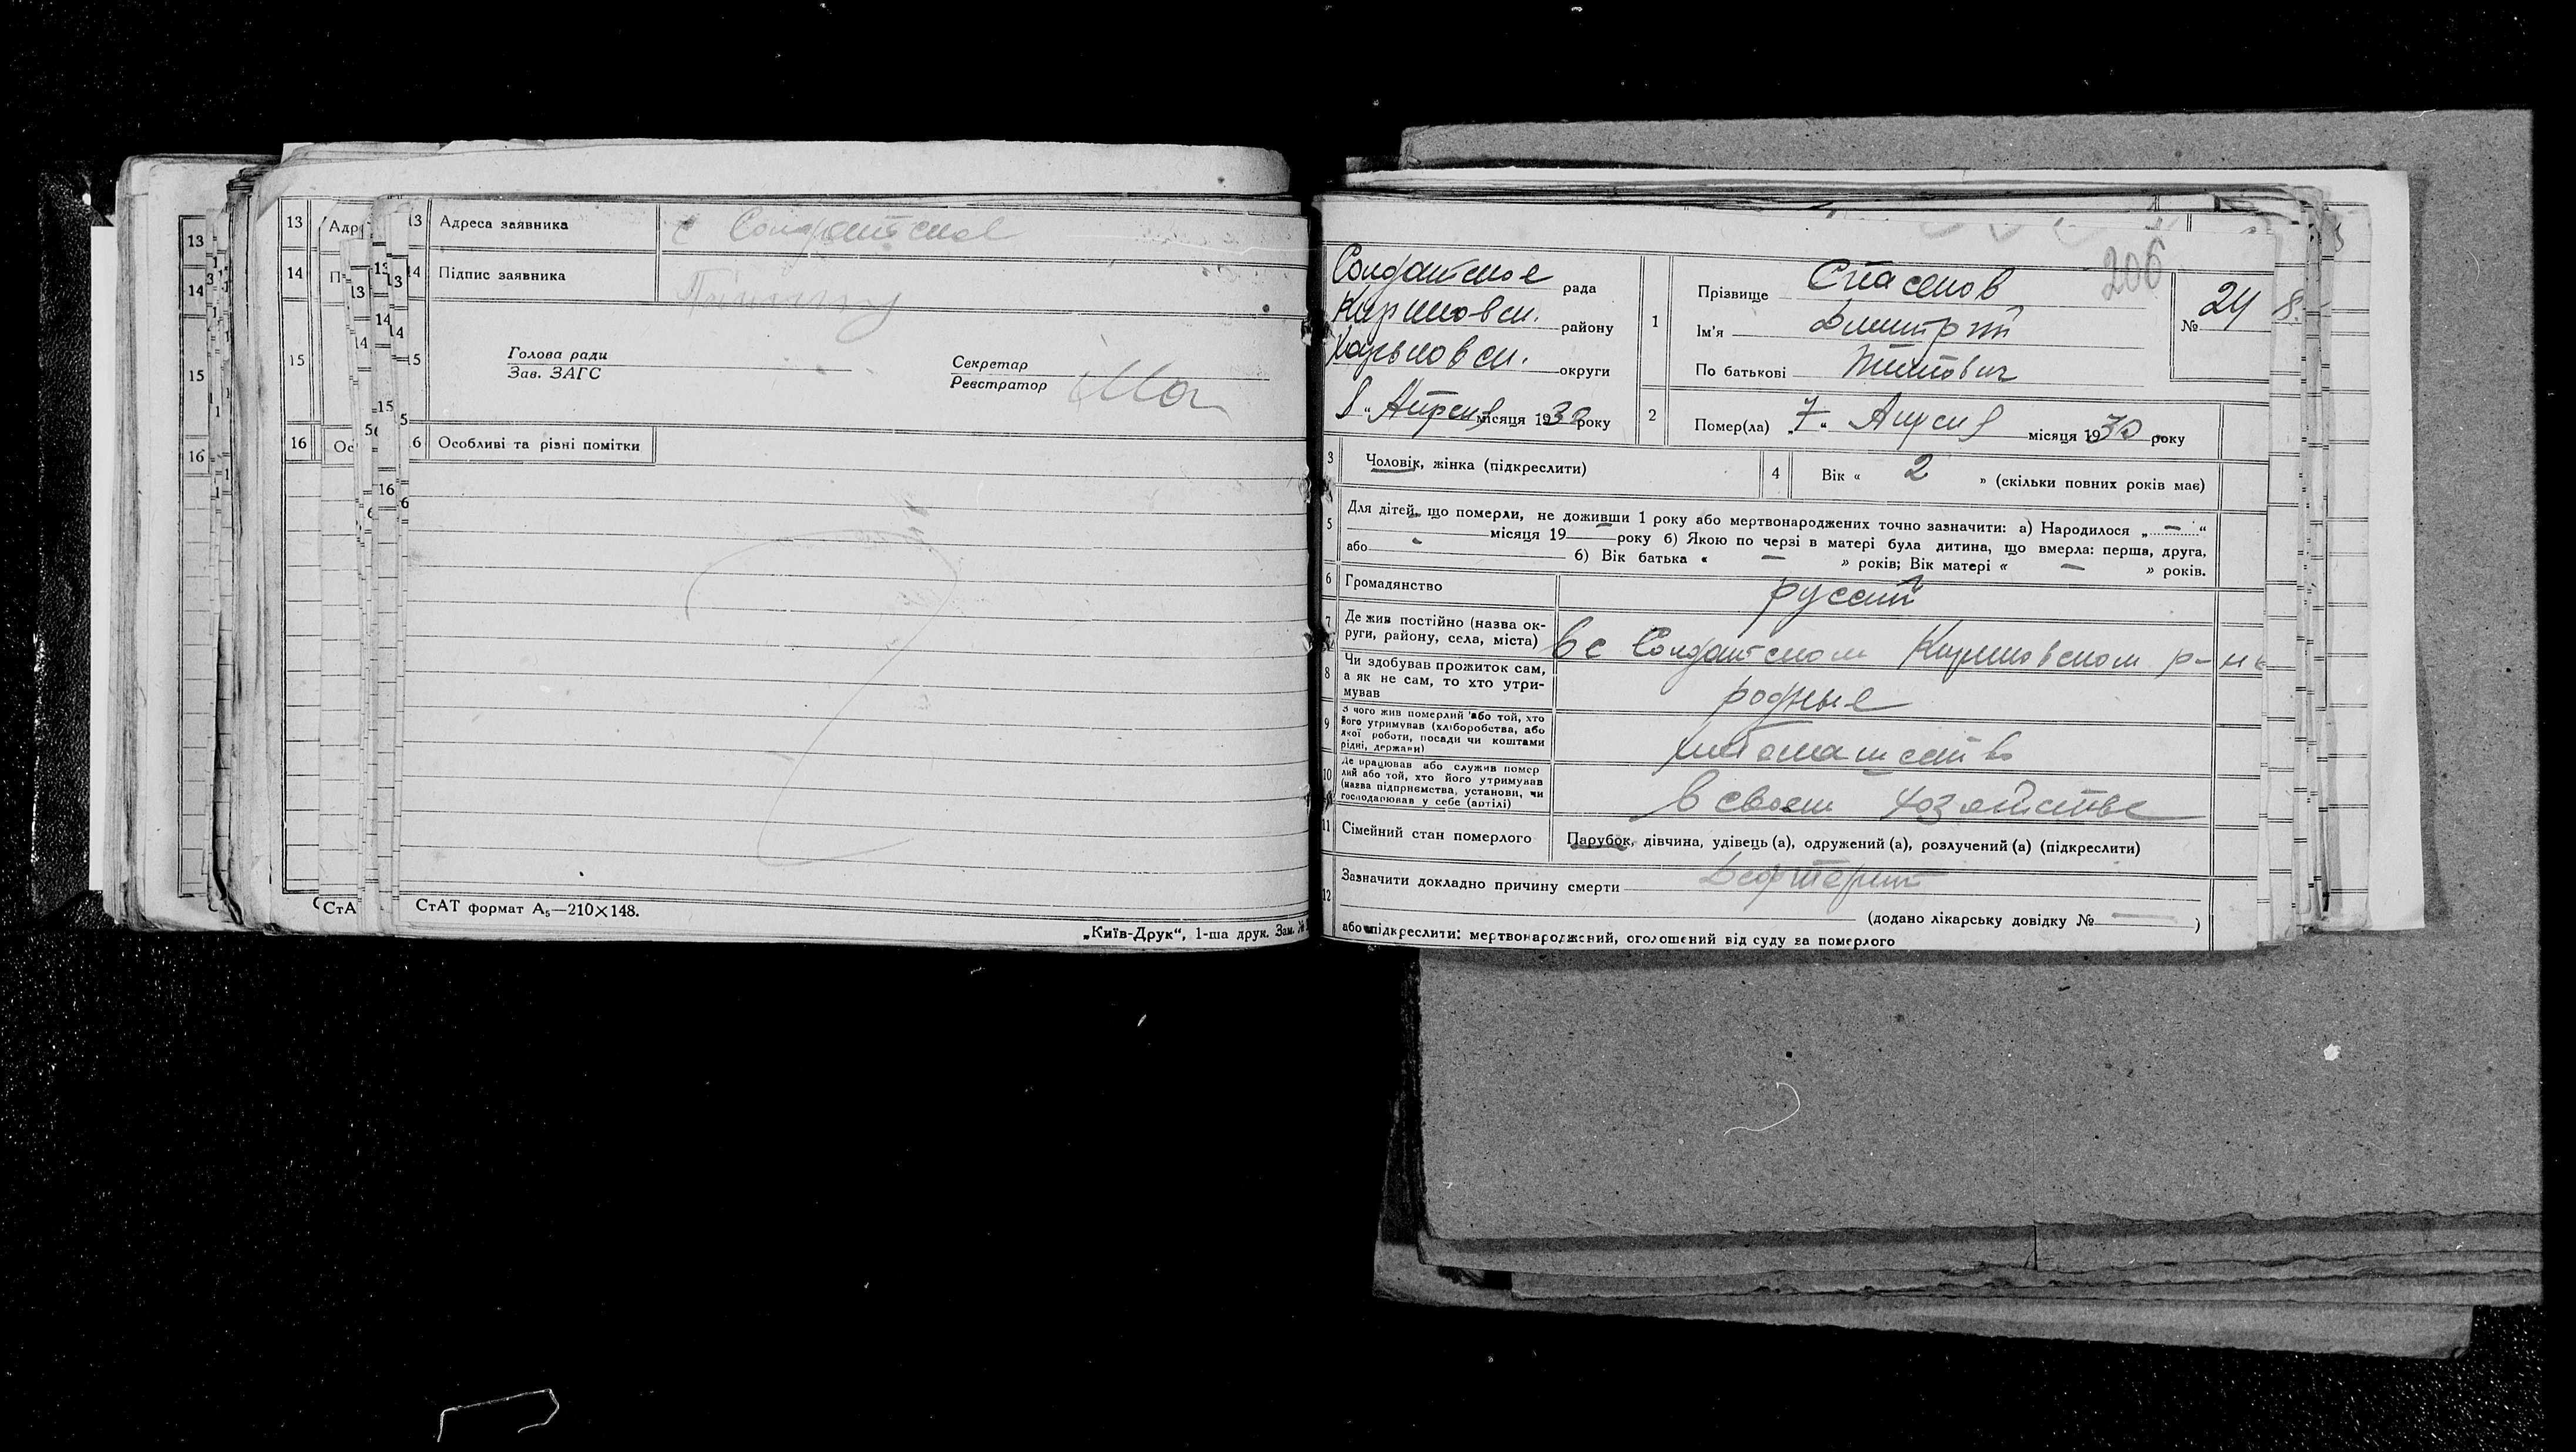 13 Адреса заявника с Солдатское
14 Підпис заявника
15 Голова ради
Зав. ЗАГС
Секретар
Реєстратор
16 Особливі та різні помітки
СтАТ формат А₅—210×148.
„Київ-Друк“, 1-ша друк. Зам. №
206
Солдатское рада
района
Харьковск. округи
8 „ Апреля місяця 1930 року
1 Прізвище Стасенов
Ім'я Дмитрий
По батькові Титович
№ 24
2 Помер(ла) „7“ Апреля місяця 1930 року
3 Чоловік, жінка (підкреслити)
4 Вік « 2 » (скільки повних років має)
5 Для дітей, що померли, не доживши 1 року або мертвонароджених точно зазначити: а) Народилося „ — “
місяця 19 року б) Якою по черзі в матері була дитина, що вмерла: перша, друга,
або б) Вік батька « — » років; Вік матері « — » років.
6 Громадянство русский
7 Де жив постійно (назва ок-
руги, району, села, міста) в с Солдатском
8 Чи здобував прожиток сам,
а як не сам, то хто утри-
мував родные
9 З чого жив померлий або той, хто
його утримував (хліборобства, або
якої роботи, посади чи коштами
рідні, держави)
10 Де працював або служив помер
лий або той, хто його утримував
(назва підприємства, установи, чи
господарював у себе (артілі) в своем хозяйстве
11 Сімейний стан померлого Парубок, дівчина, удівець (а), одружений (а), розлучений (а) (підкреслити)
12 Зазначити докладно причину смерти Дефтерит
(додано лікарську довідку № — )
або підкреслити: мертвонароджений, оголошений від суду за померлого